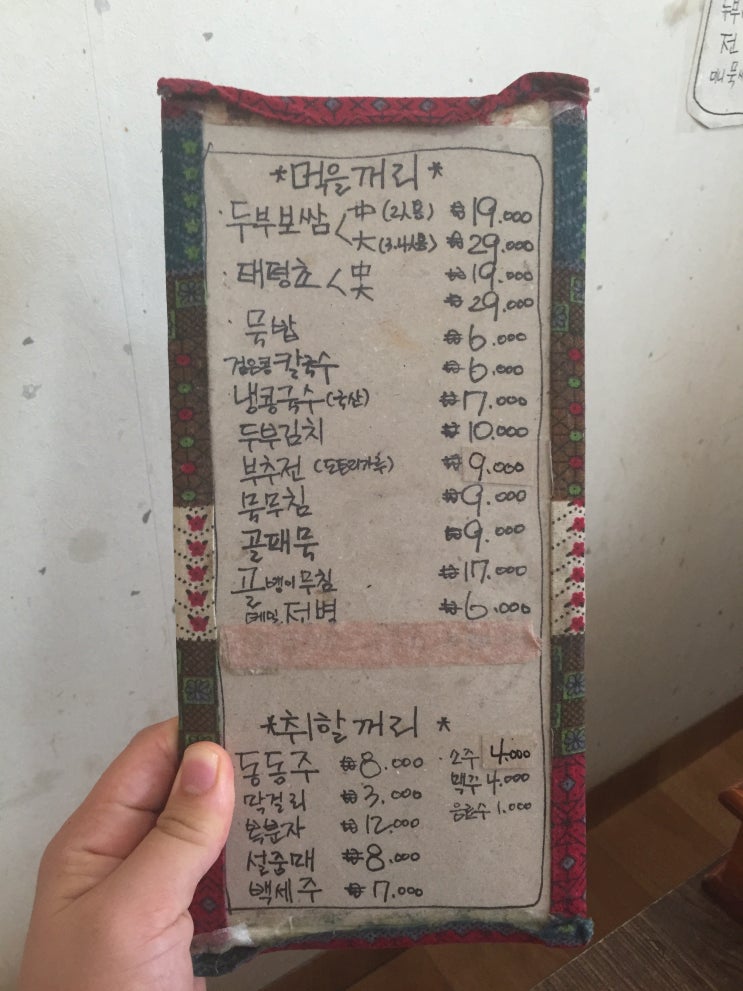 *먹을꺼리*
·두부보쌈 < 中 (2人용) ₩19.000
大 (3.4人용) ₩29.000
·태평초 < 中 ₩19.000
大 ₩29.000
·묵밥 ₩6.000
검은콩칼국수 ₩6.000
냉콩국수(국산) ₩7.000
두부김치 ₩10.000
부추전 (도토리가루) ₩9.000
묵무침 ₩9.000
골패묵 ₩9.000
골뱅이무침 ₩17.000
메밀전병 ₩6.000
*취할꺼리*
동동주 ₩8.000 ·소주 4.000
막걸리 ₩3.000 맥주 4.000
복분자 ₩12.000 음료수 1.000
설중매 ₩8.000
백세주 ₩7.000
두부
전
미니묵